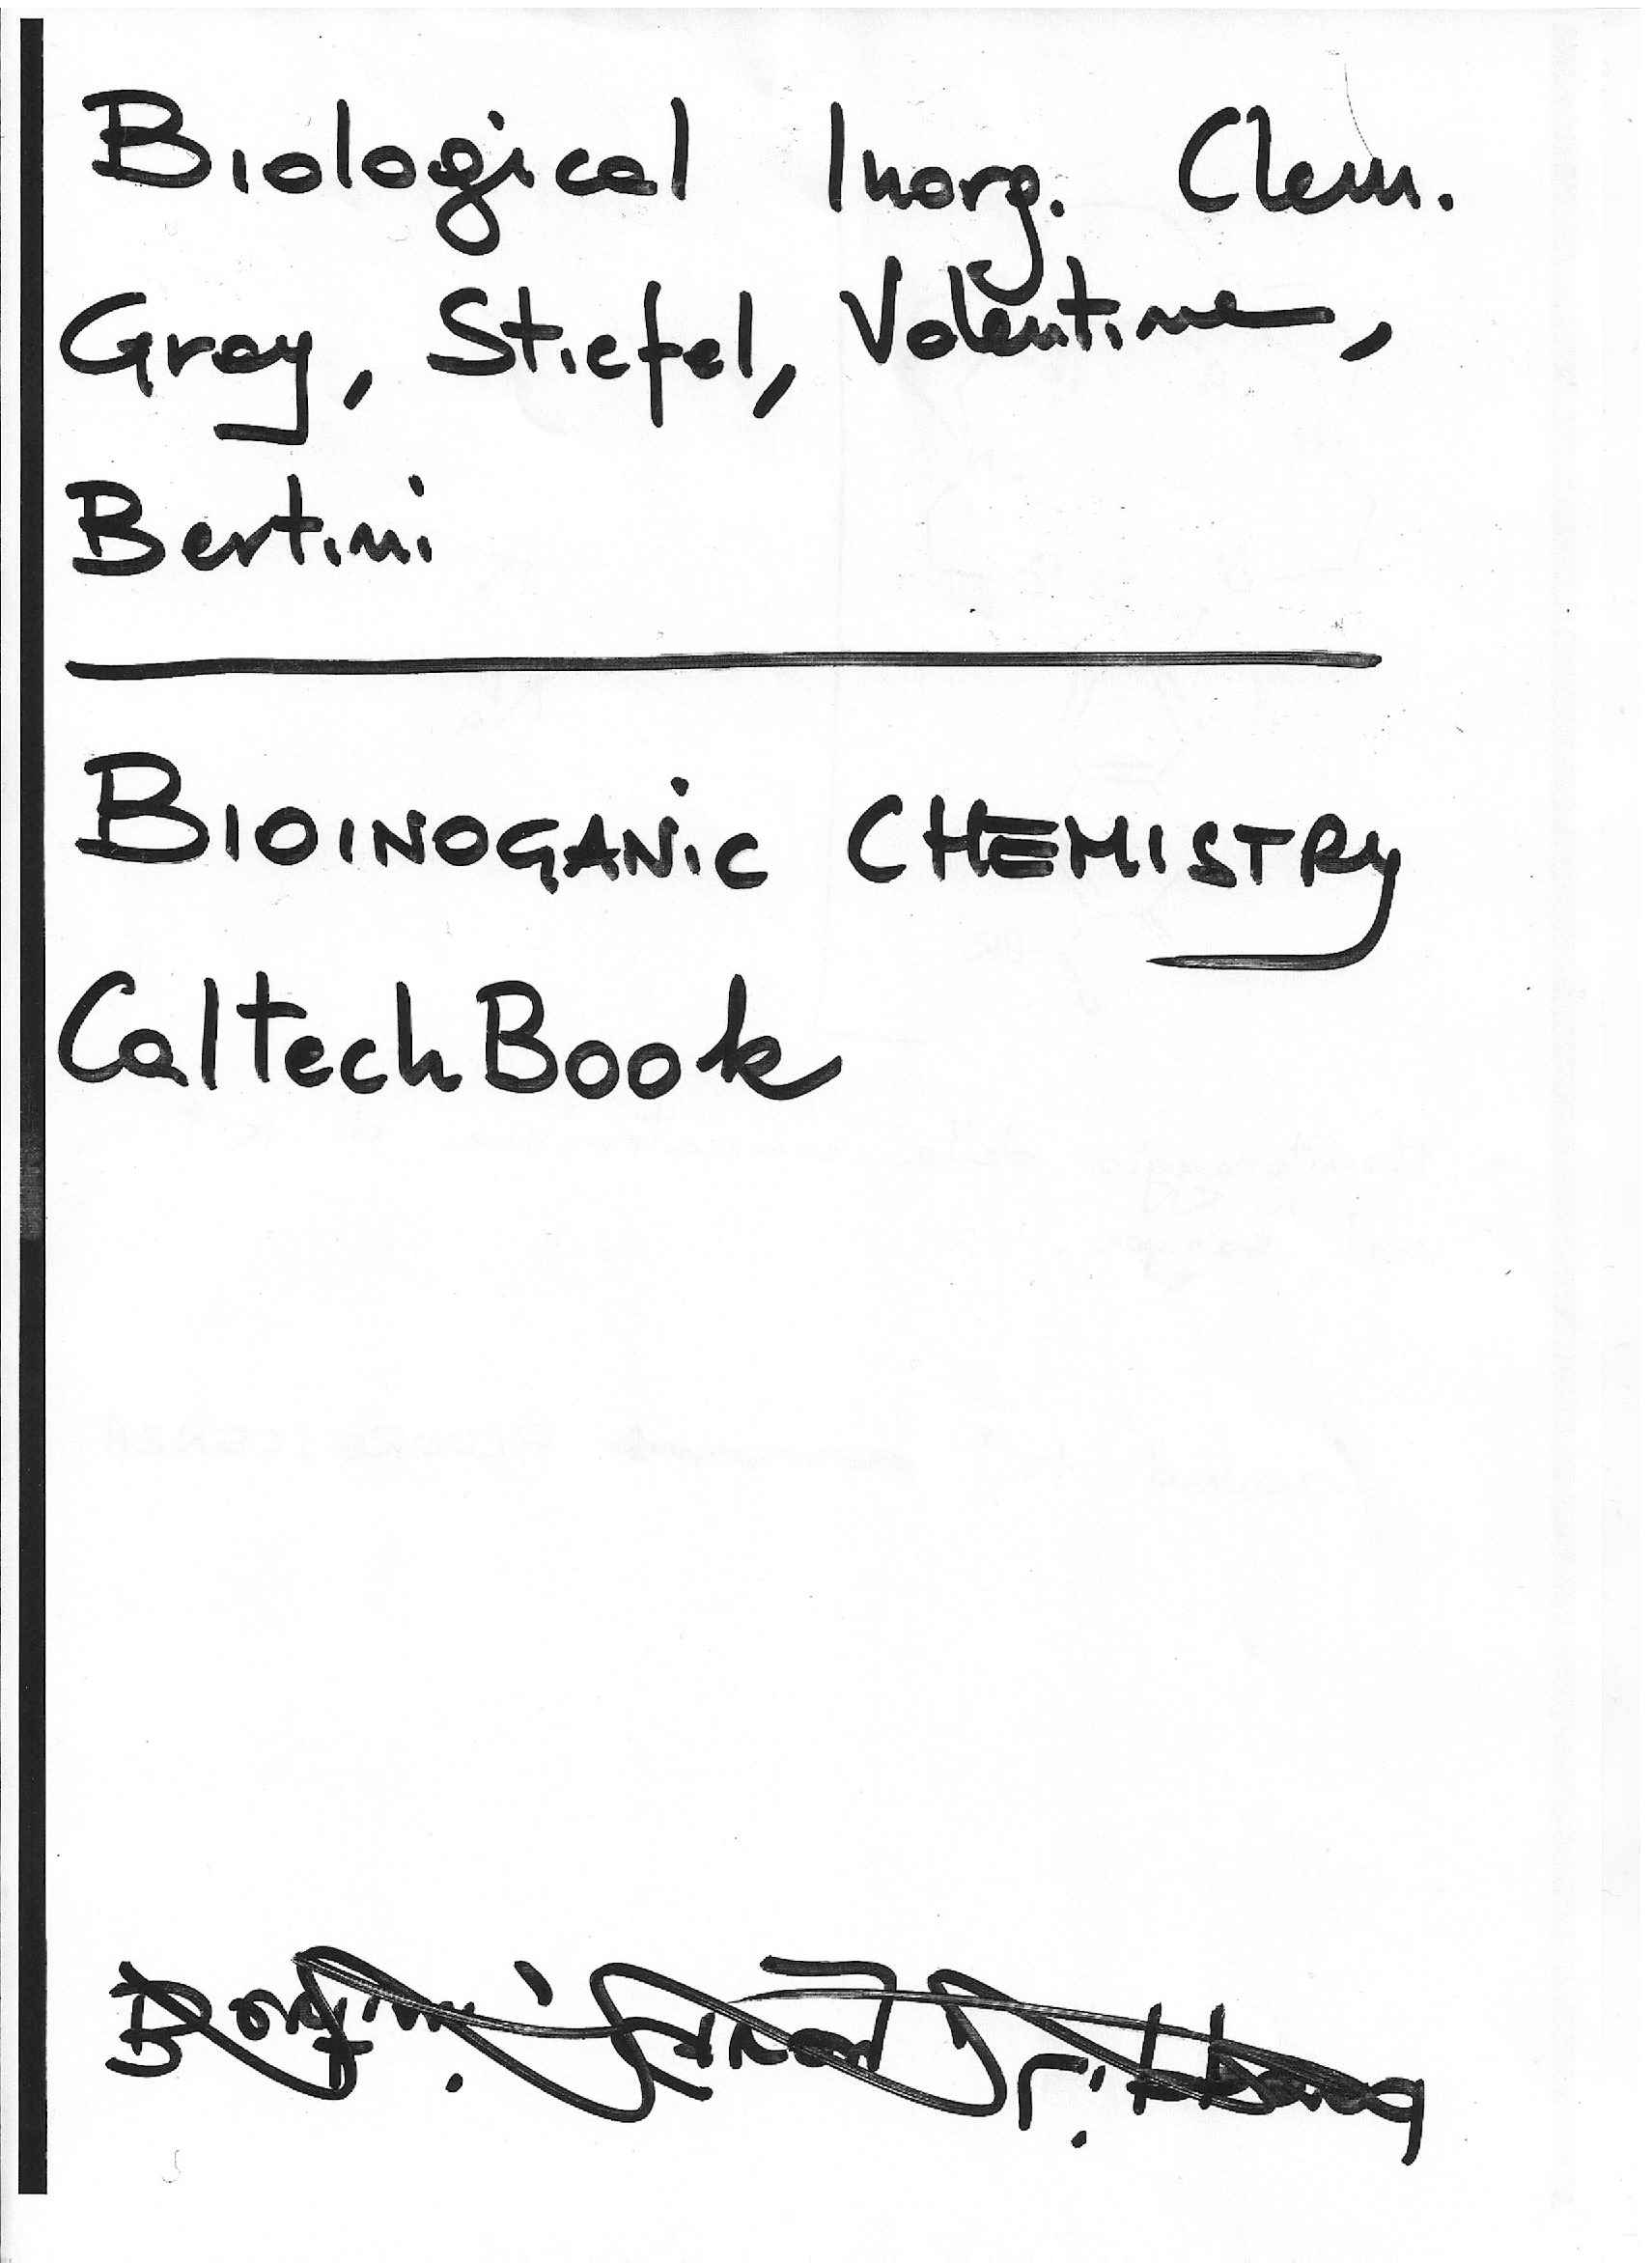 Biological Inorg. Chem.
Gray, Stiefel, Valentine,
Bertini
BIOINOGANiC CHEMISTRy
Caltech Book